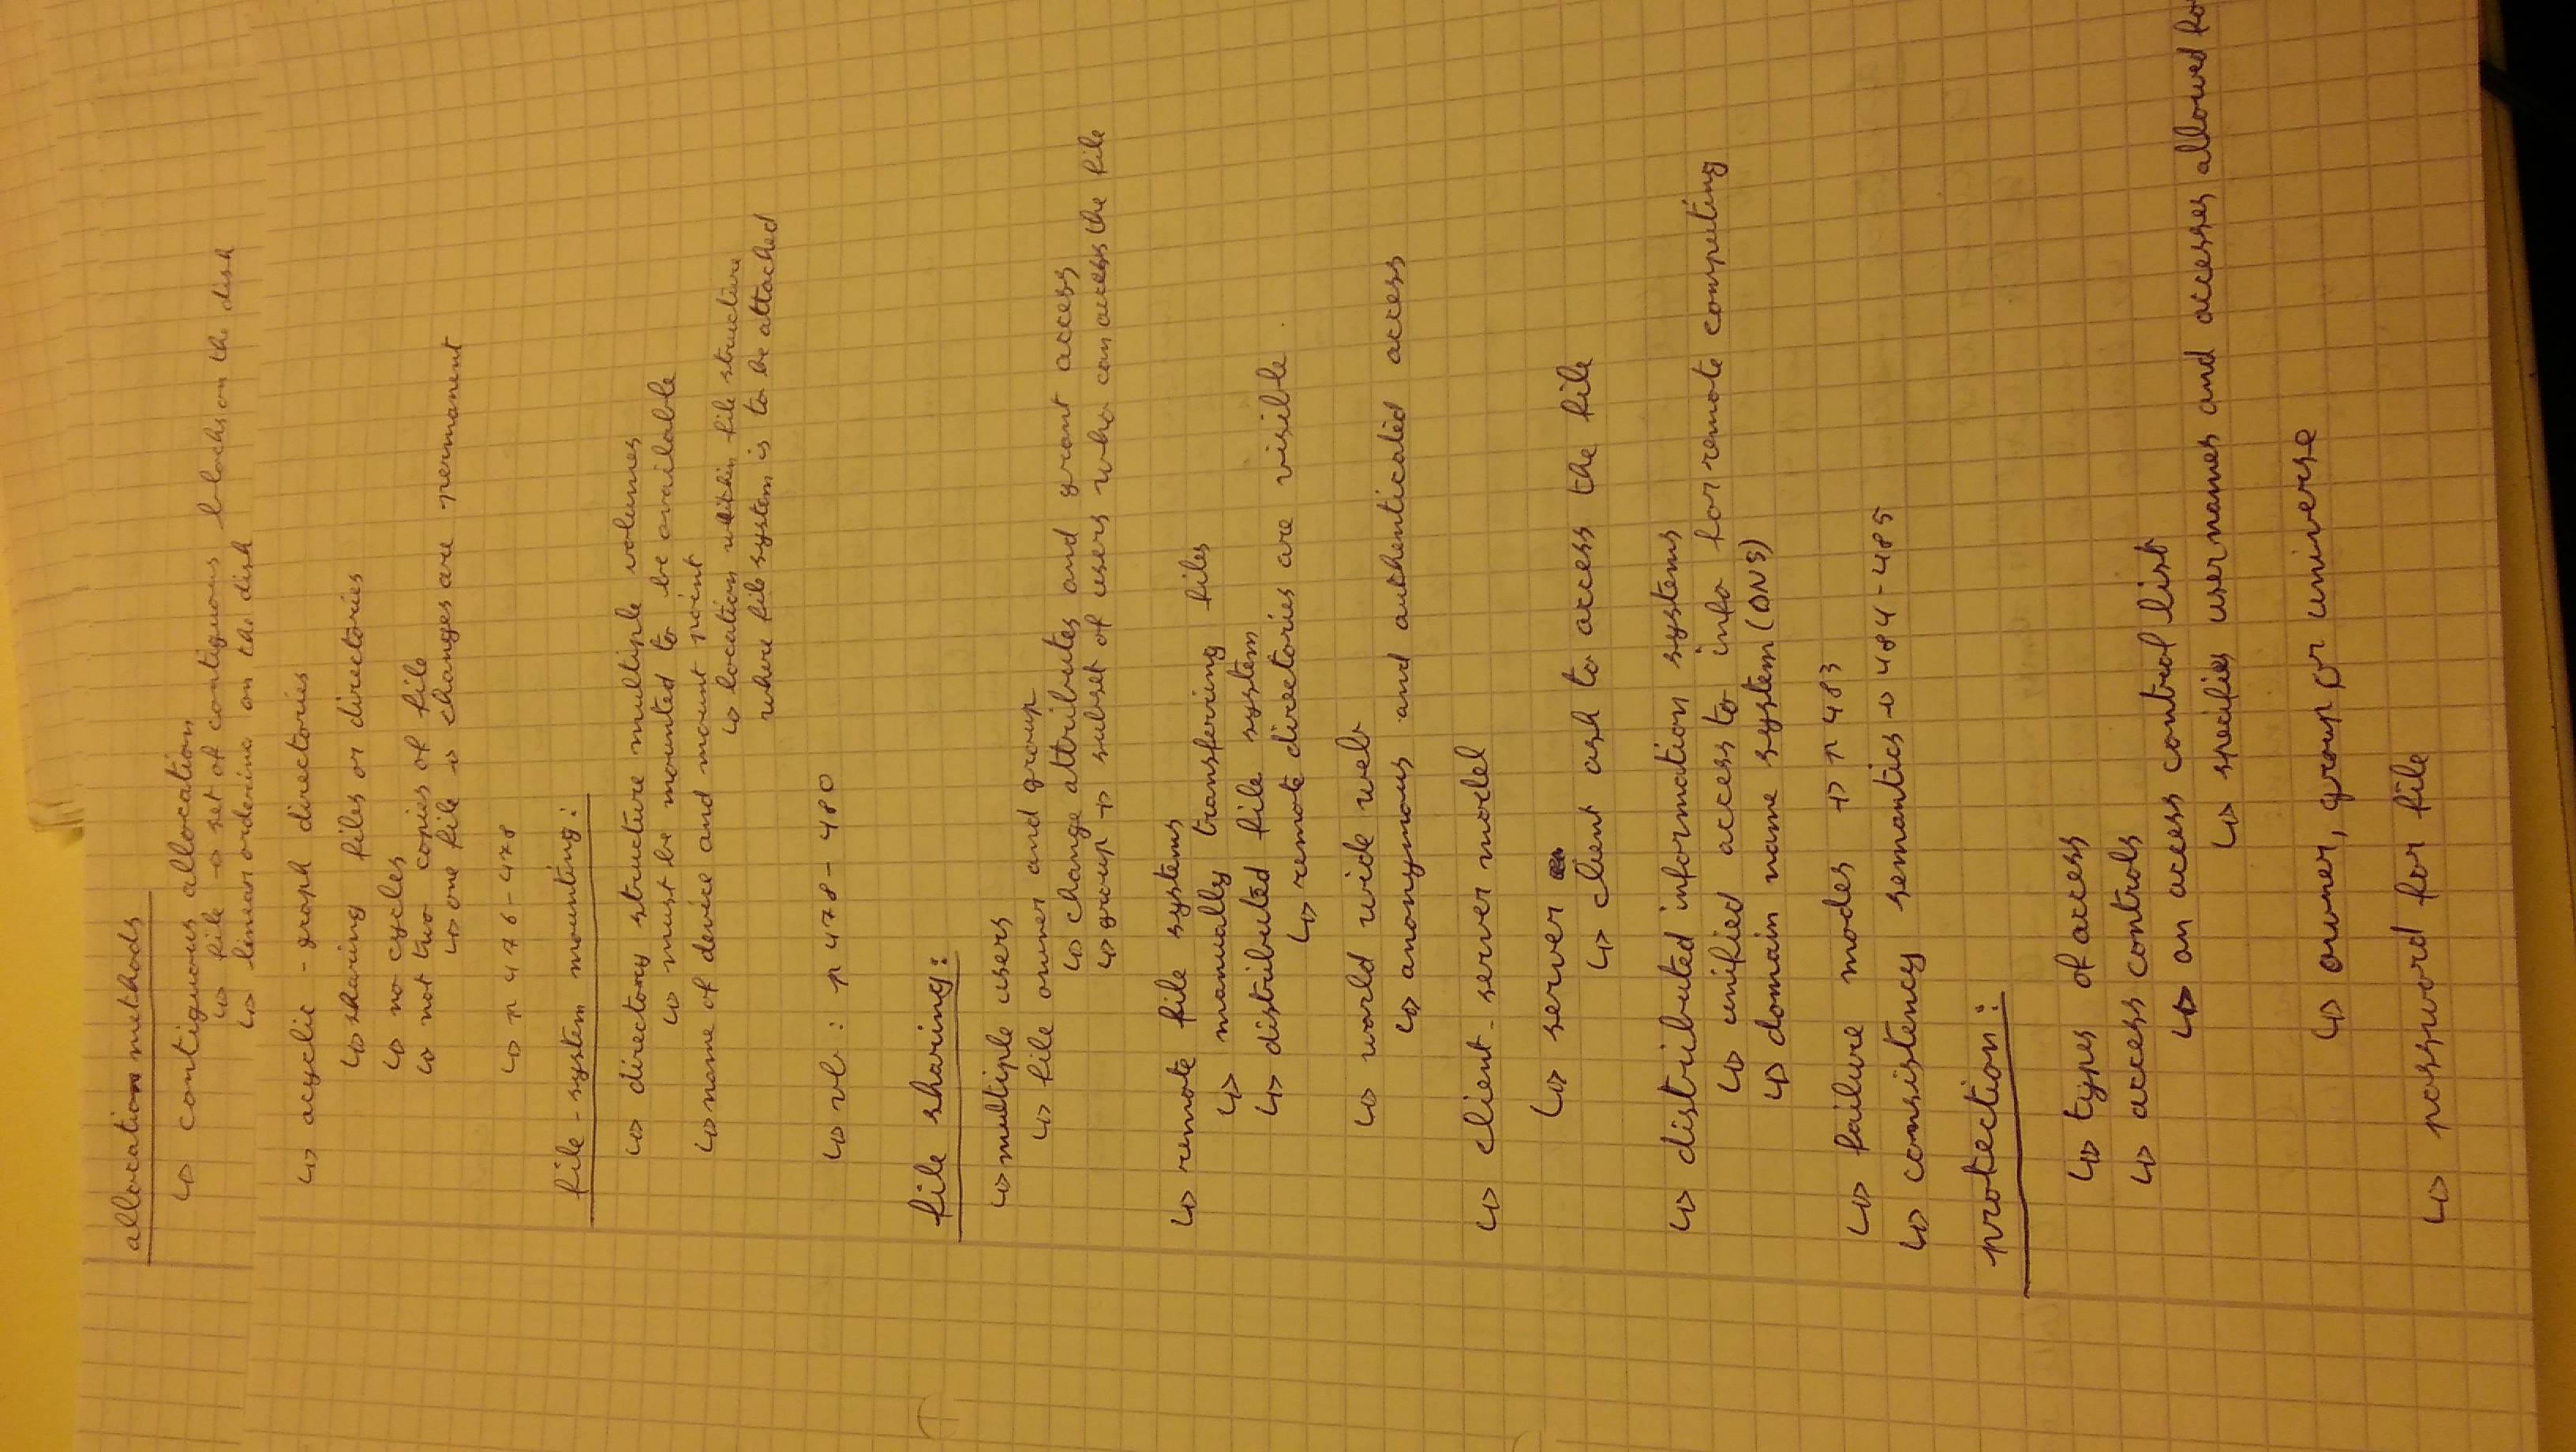 allocation methods
↳ contiguous allocation
↳ file → set of contiguous blocks on the disk
↳ linear ordering on the disk
↳ acyclic - graph directories
↳ sharing files or directories
↳ no cycles
↳ not two copies of file
↳ one file → changes are permanent
↳ p 476-478
file-system mounting:
↳ directory structure multiple volumes
↳ must be mounted to be available
↳ name of device and mount point
↳ location within file structure
where file system is to be attached
↳ vb: p 478-480
file sharing:
↳ multiple users
↳ file owner and group
↳ change attributes and grant access
↳ group → subset of users who can access the file
↳ remote file systems
↳ manually transferring files
↳ distributed file system
↳ remote directories are visible
↳ world wide web
↳ anonymous and authenticated access
↳ client-server model
↳ server
↳ client ask to access the file
↳ distributed information systems
↳ unified access to info for remote computing
↳ domain name system (DNS)
↳ failure modes → p 483
↳ consistency semantics → 484-485
protection:
↳ types of access
↳ access controls
↳ an access control list
↳ specifies usernames and accesses allowed fo
↳ owner, group or universe
↳ password for file